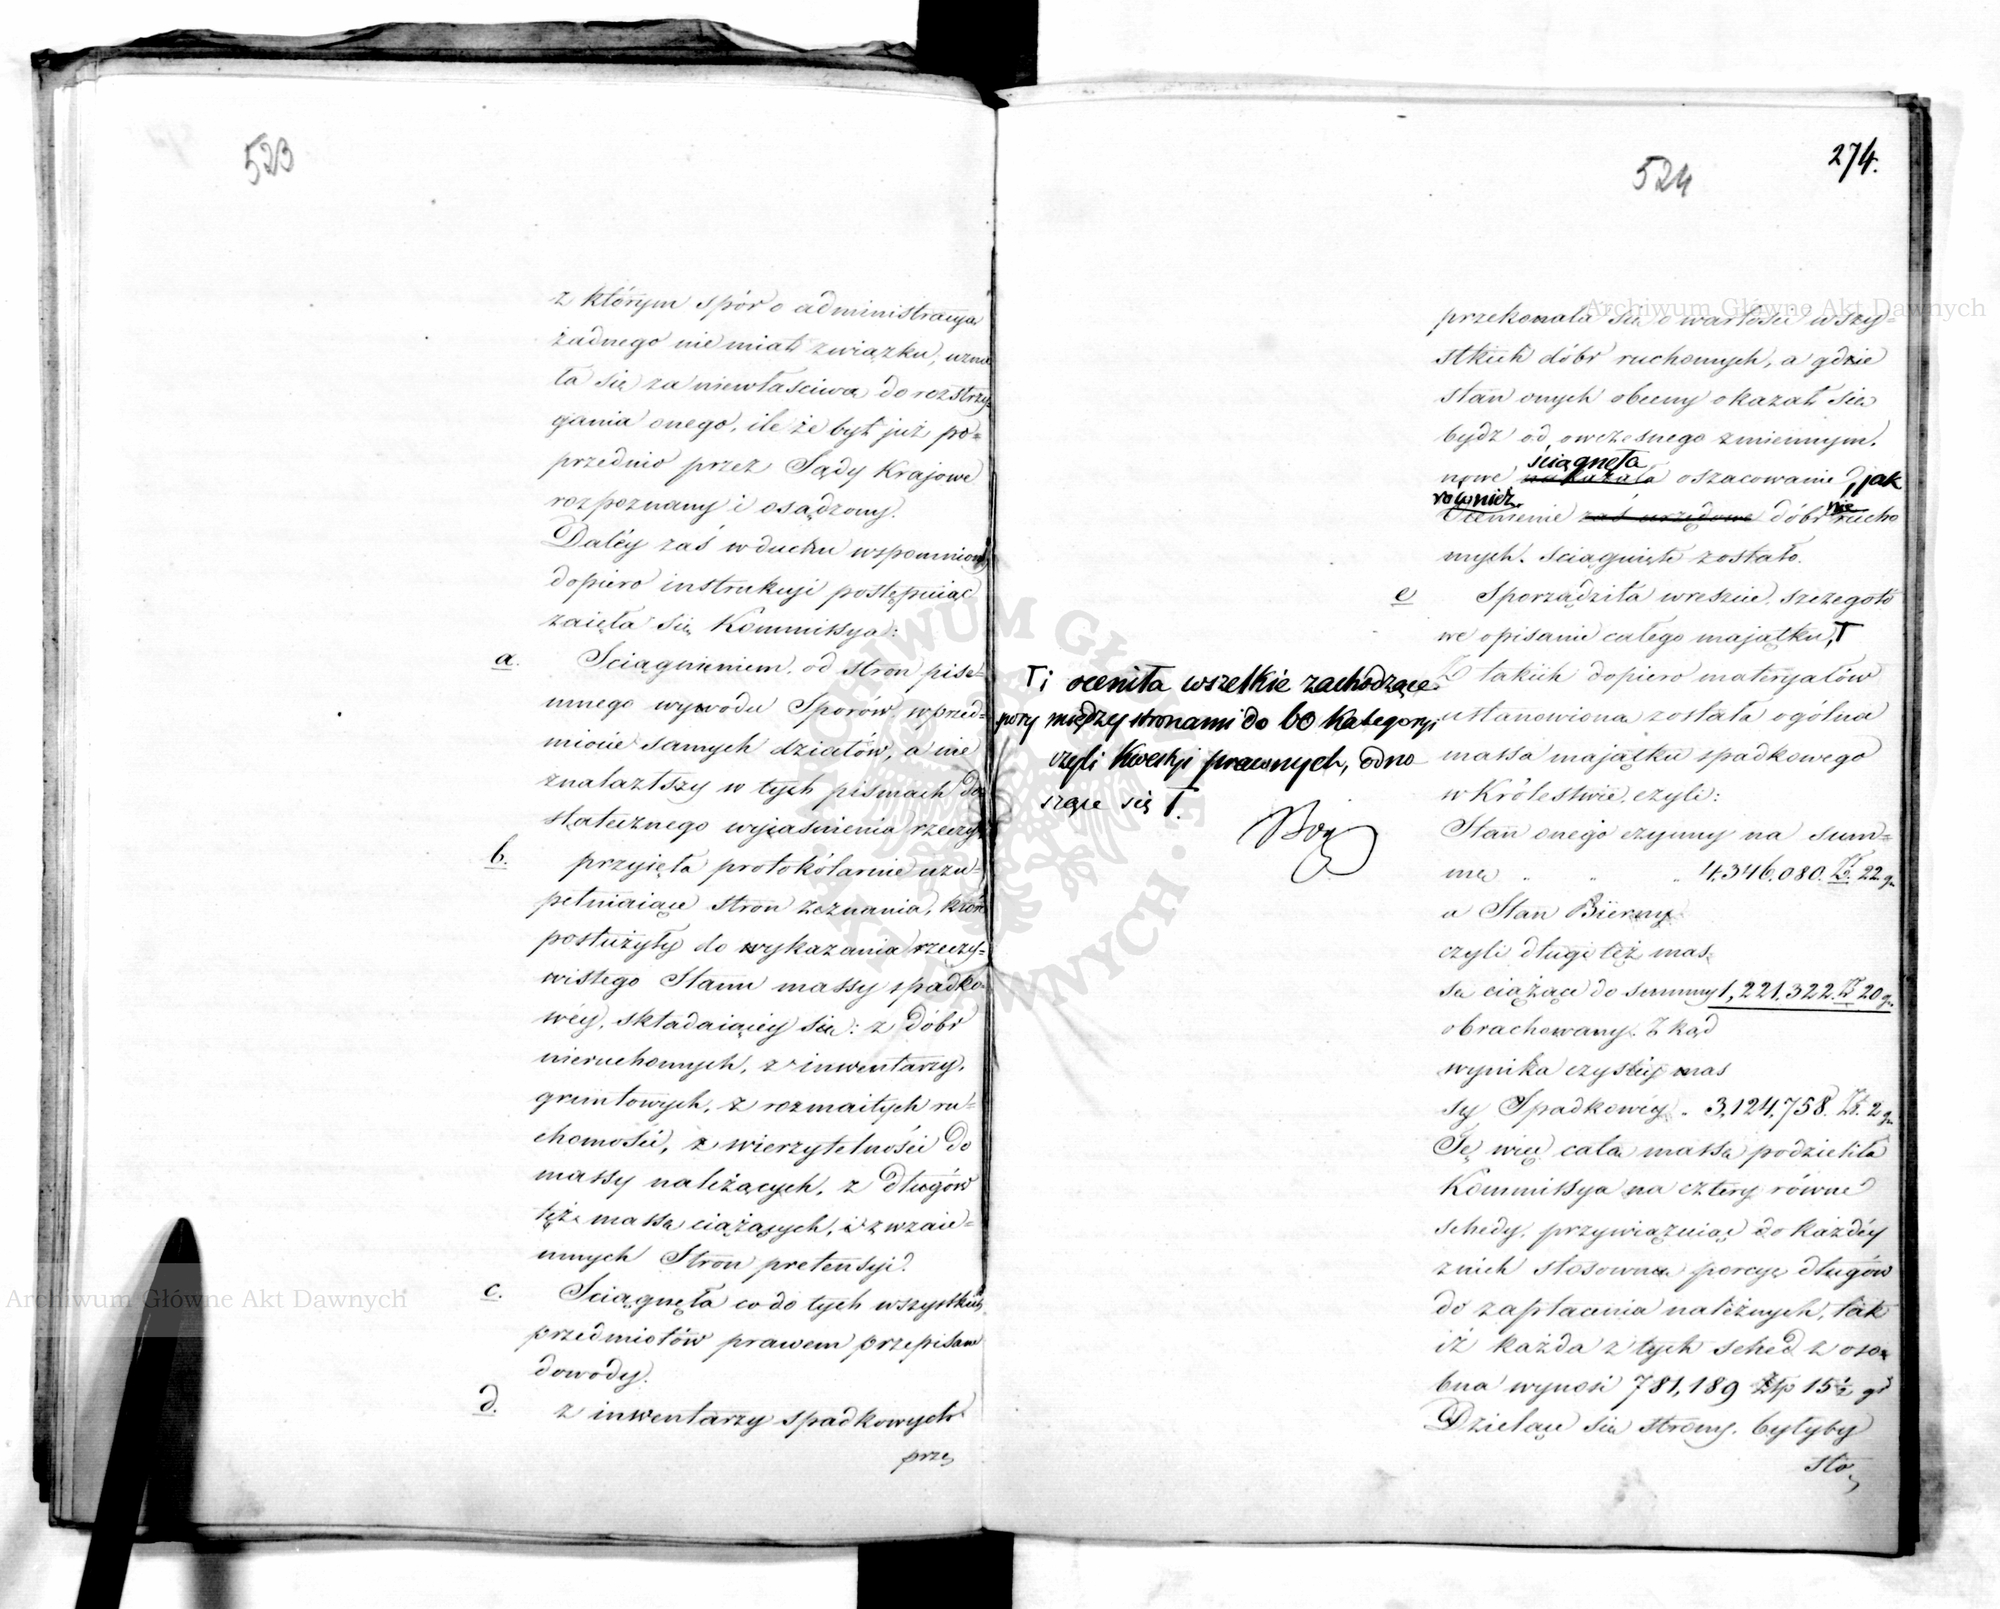 523
z którym spór o administracyą
żadnego nie miał związku, uzna
ła się za niewłaściwą do rozstrzy
gania onego, ile że był już po=
przednio przez Sądy Krajowe
rozpoznany i osądzony.
Daléy zaś w duchu wspomnioney
dopiero instrukcyi postępuiąc
zaięła się Kommissya:
a. Sciągnieniem od stron piśe=
mnego wywodu Sporów, w przed=
miocie samych działów, a nie
znalazłszy w tych pismach do
statecznego wyjaśnienia rzeczy,
b. przyięła protokólarnie uzu=
pełniaiące stron zeznania, które
posłużyły do wykazania rzeczy=
wistego Stanu massy spadko=
wéy, składaiącéy się: z dóbr
nieruchomych, z inwentarzy
gruntowych, z rozmaitych ru=
chomości, z wierzytelności do
massy należących, z długów
też massę ciążących, i z wzaie=
mnych Stron pretensyi.
c. Sciągnęła co do tych wszystkich
przedmiotów prawem przepisane
dowody.
d. z inwentarzy spadkowych
prze
274.
524
przekonała się o wartości wszy=
stkich dóbr ruchomych, a gdzie
stan onych obecny okazał się
bydz od owczesnego zmiennym,
nowe ściągnęła oszacowanie, jak
również
Ocenienie zaś urzędowe dóbr nierucho
mych, sciągnięte zostało.
e Sporządziła wreszcie szczegoło
we opisanie całego majątku, T
T i oceniła wszelkie zachodzące
spory między stronami do 60 kategoryi
czyli kwestji prawnych, odno
szące się T.
Z takich dopiero materyałów
ustanowiona została ogólna
massa majątku spadkowego
w Królestwie, czyli:
Stan onejo czynny na sum=
mę " " " 4,346,080. Zł. 22 g.
a Stan Bierny
czyli długi też mas
sę ciążące do summy 1,221,322. Zł. 20 g.
obrachowany. Zkąd
wynika czystéy mas
sy Spadkowéy . 3,124,758. Zł. 2 g.
Tę więc całą massę podzieliła
Kommissya na cztery równe
schedy, przywiązuiąc do każdéy
z nich stosowną porcyę długów
do zapłacenia należnych, tak
iż każda z tych sched z oso=
bna wynosi 781,189 Złp 15½ g
Dzielące się strony, byłyby
sto
Archiwum Główne Akt Dawnych
Archiwum Główne Akt Dawnych